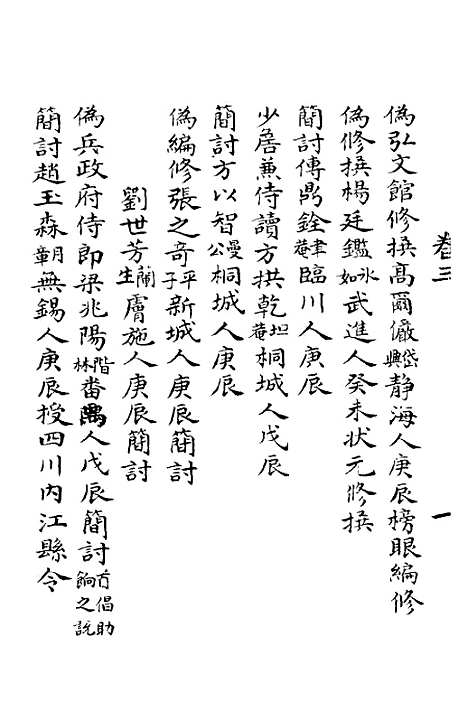 卷三
一
偽弘文館修撰高爾儼岱輿靜海人庚辰榜眼編修
偽修撰楊廷鑑冰如武進人癸未狀元修撰
簡討傅鼎銓聿菴臨川人庚辰
少詹兼侍讀方拱乾坦菴桐城人戊辰
簡討方以智曼公桐城人庚辰
偽編修張之奇平子新城人庚辰簡討
劉世芳蘭生膚施人庚辰簡討
偽兵政府侍郎梁兆陽階林番禺人戊辰簡討首倡助餉之說
簡討趙玉森月章無錫人庚辰授四川內江縣令